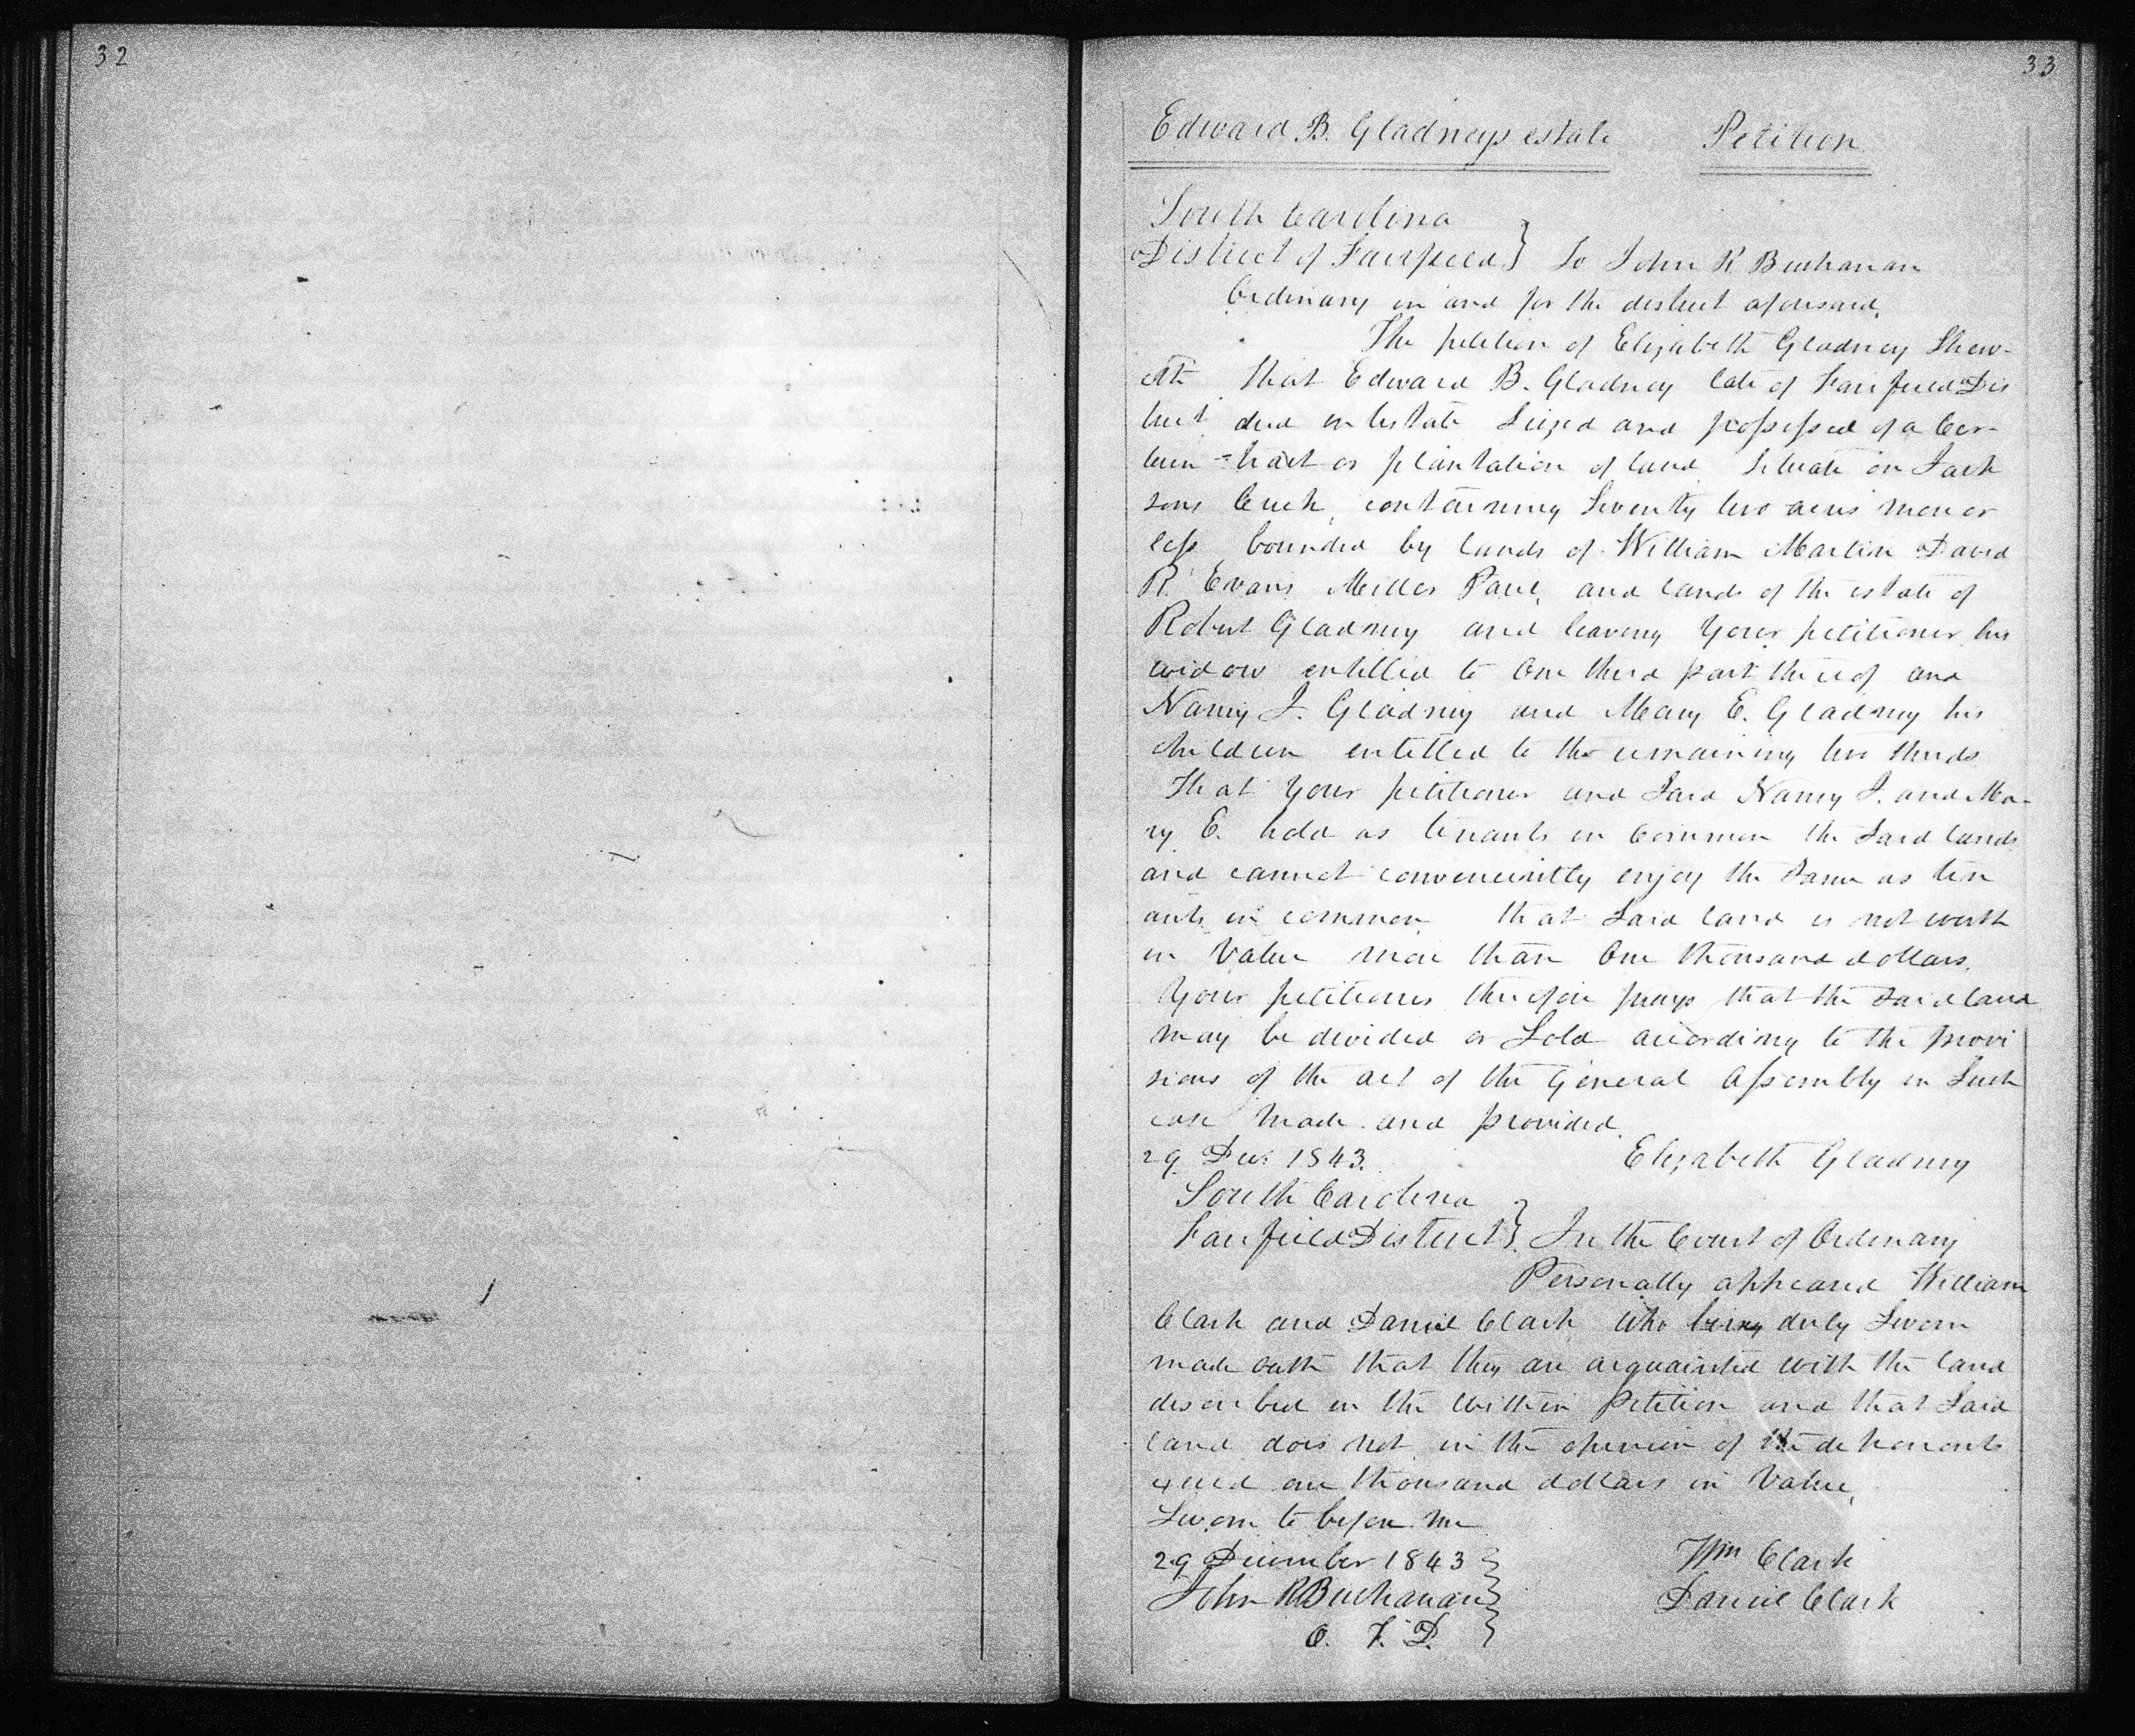 32
33
Edward B. Gladneys estate Petition
South Carolina
District of Fairfield } To John R Buchanan
Ordinary in and for the district aforesaid,
The petition of Elizabeth Gladney Shew-
eth that Edward B. Gladney late of Fairfield Dis
trict died intestate Seized and possessed of a Cer-
tain tract or plantation of land Situate on Jack
sons Creek, containing Seventy two acres more or
less bounded by lands of William Martin David
R. Evans Miller Paul, and lands of the estate of
Robert Gladney and leaving Your petitioner his
widow entitled to One third part thereof and
Nancy J. Gladney and Mary E. Gladney his
children entitled to the remaining two thirds
That Your petitioner and Said Nancy J. and Ma-
ry E. hold as tenants in Common the Said lands
and cannot conveniently enjoy the Same as ten
ants in common. that Said land is not worth
in Value more than One thousand dollars.
Your petitioner therefore prays that the Said land
may be divided or Sold according to the provi
sions of the act of the General Assembly in Such
case made and provided.
29 Dec 1843. Elizabeth Gladney
South Carolina
Fairfield District } In the Court of Ordinary
Personally appeared William
Clark and Daniel Clark Who being duly Sworn
made oath that they are acquainted with the land
described in the within Petition and that Said
land does not in the opinion of the deponents
exceed one thousand dollars in Value,
Sworn to before me
29 December 1843 Wm Clark
John R Buchanan Daniel Clark
O. F. D.